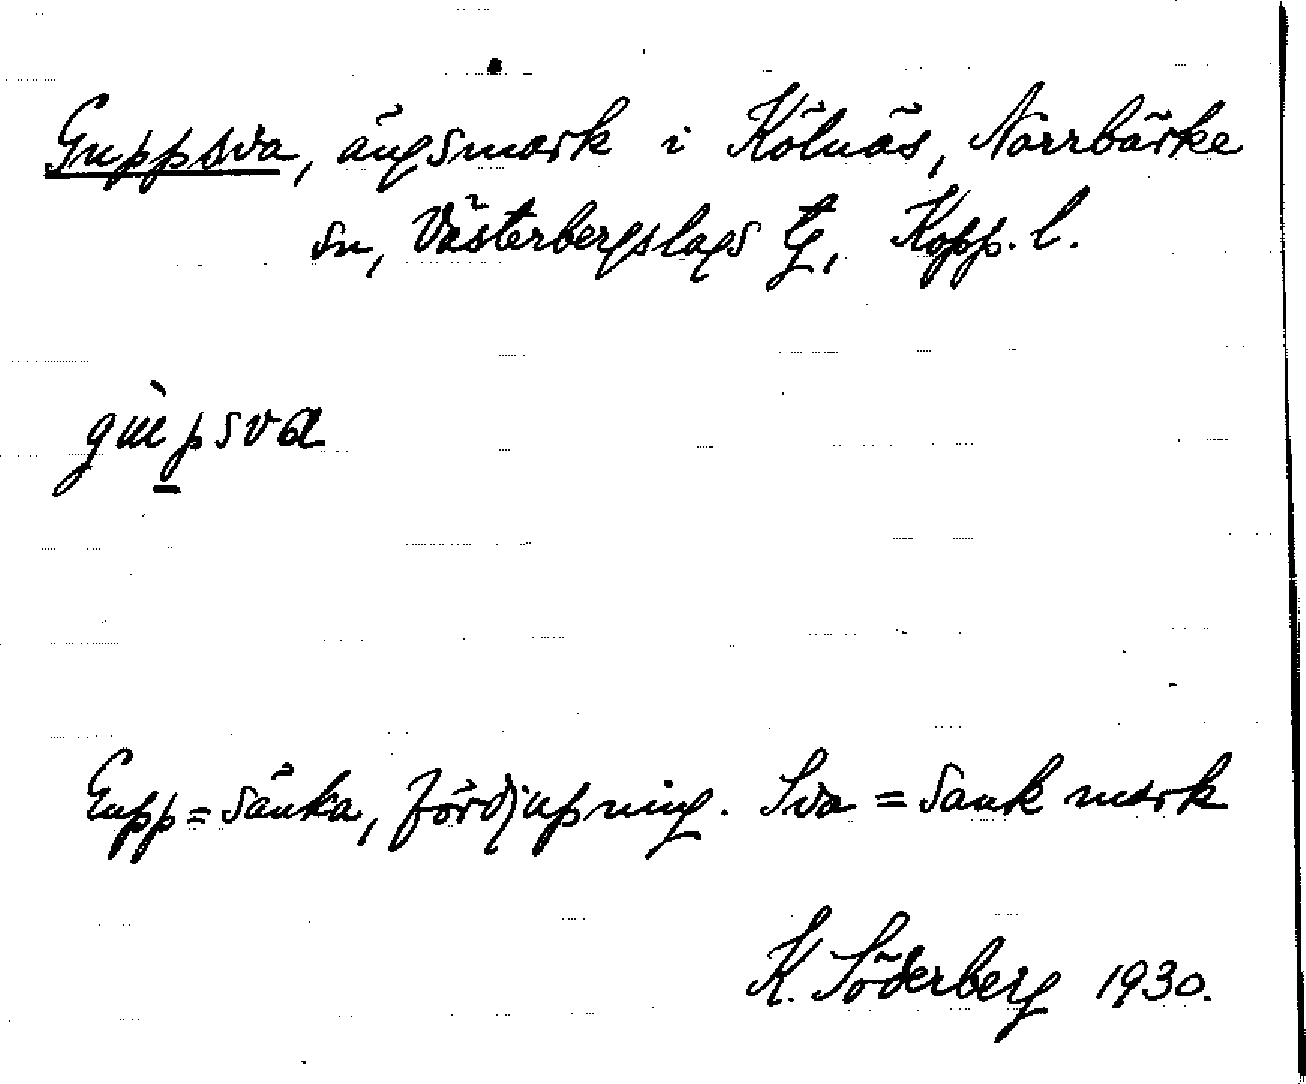 Guppsva, ängsmark i Kölnäs, Norrbärke
sn, Västerbergslags tg, Kopp. l.
gu̇̀psva
Gupp = sänka, fördjupning. Sva = sank mark
K. Söderberg 1930.